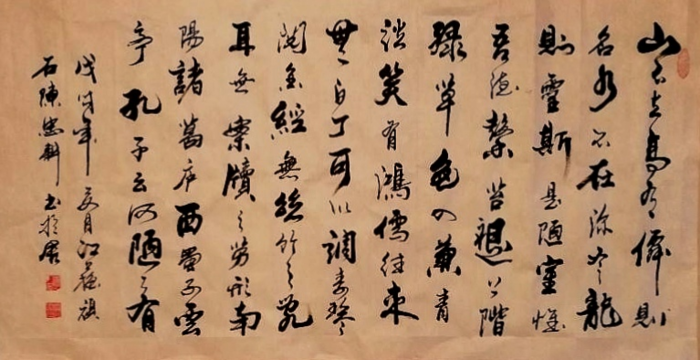 山不在高有僊則
名水不在深有龍
則靈斯是陋室惟
吾德馨苔痕上階
綠草色入簾青
談笑有鴻儒往來
無白丁可以調素琴
閱金經無絲竹之亂
耳無案牘之勞形南
陽諸葛庐西蜀子雲
亭孔子云何陋之有
戊戌年夏月江蘇
石陳忠科書於